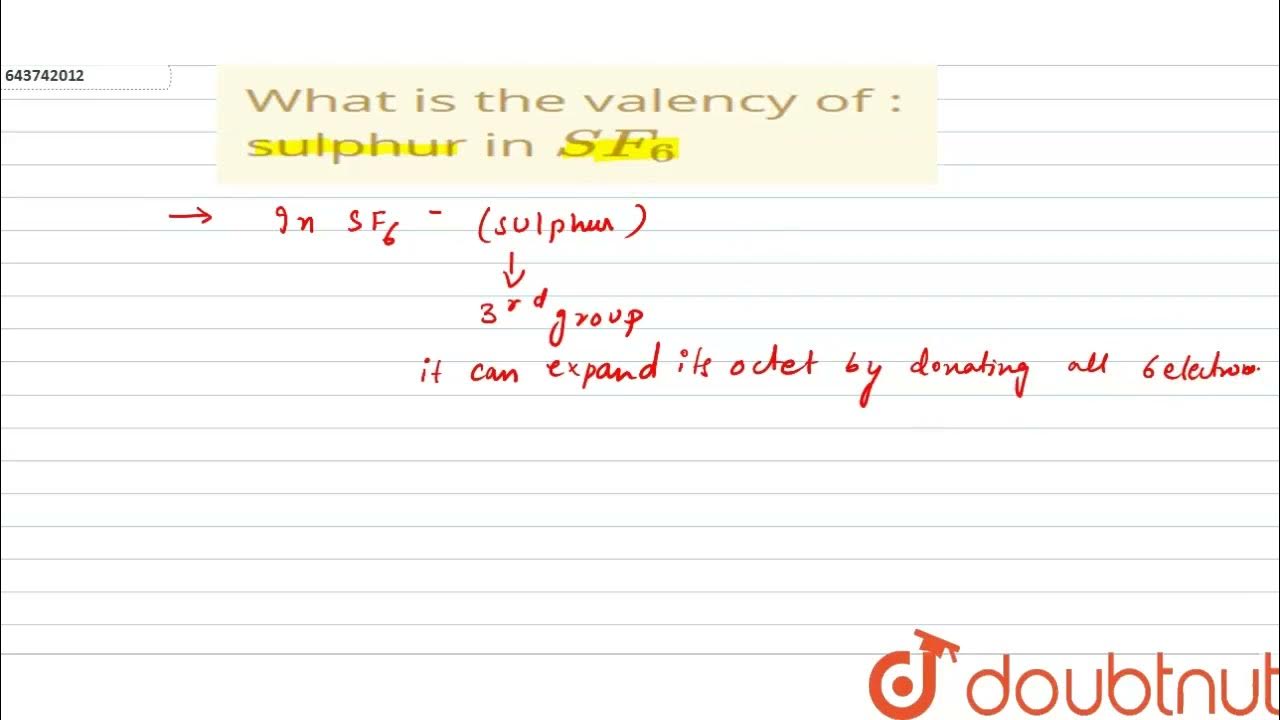 643742012
What is the valency of :
sulphur in SF₆
→ In SF₆ - (sulphur)
↓
3rd group
it can expand its octet by donating all 6 electrons.
doubtnut